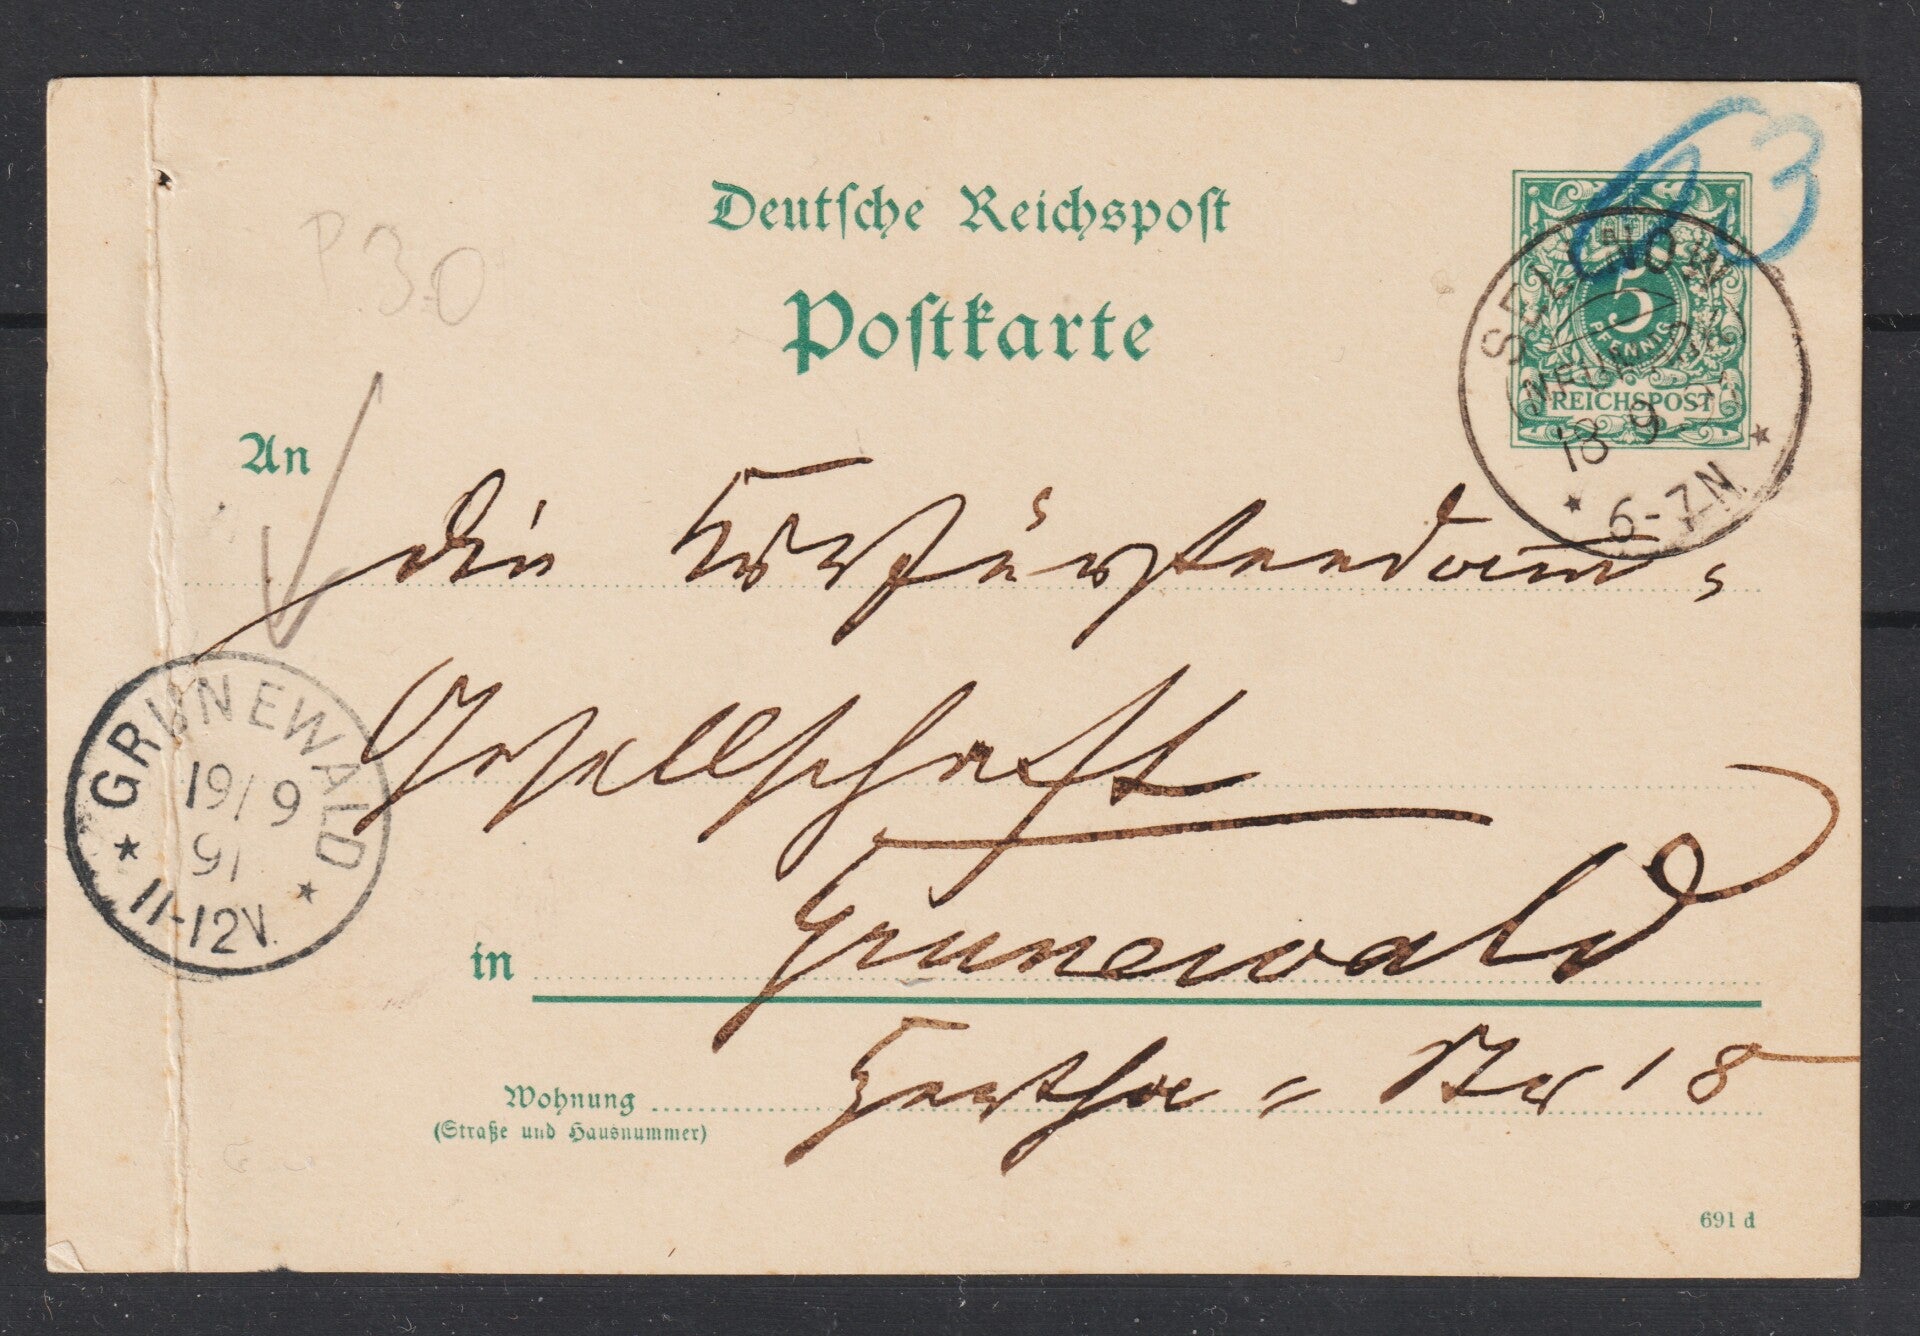 Deutsche Reichspost
Postkarte
P.30
5
PFENNIG
REICHSPOST
SELLNOW
18 9
6-7N
An
die Kurfürstendamm-
Gesellschaft
in Grunewald
Wohnung
(Straße und Hausnummer)
Hertha - Str 18
GRUNEWALD
19/9
91
11-12V.
691 d